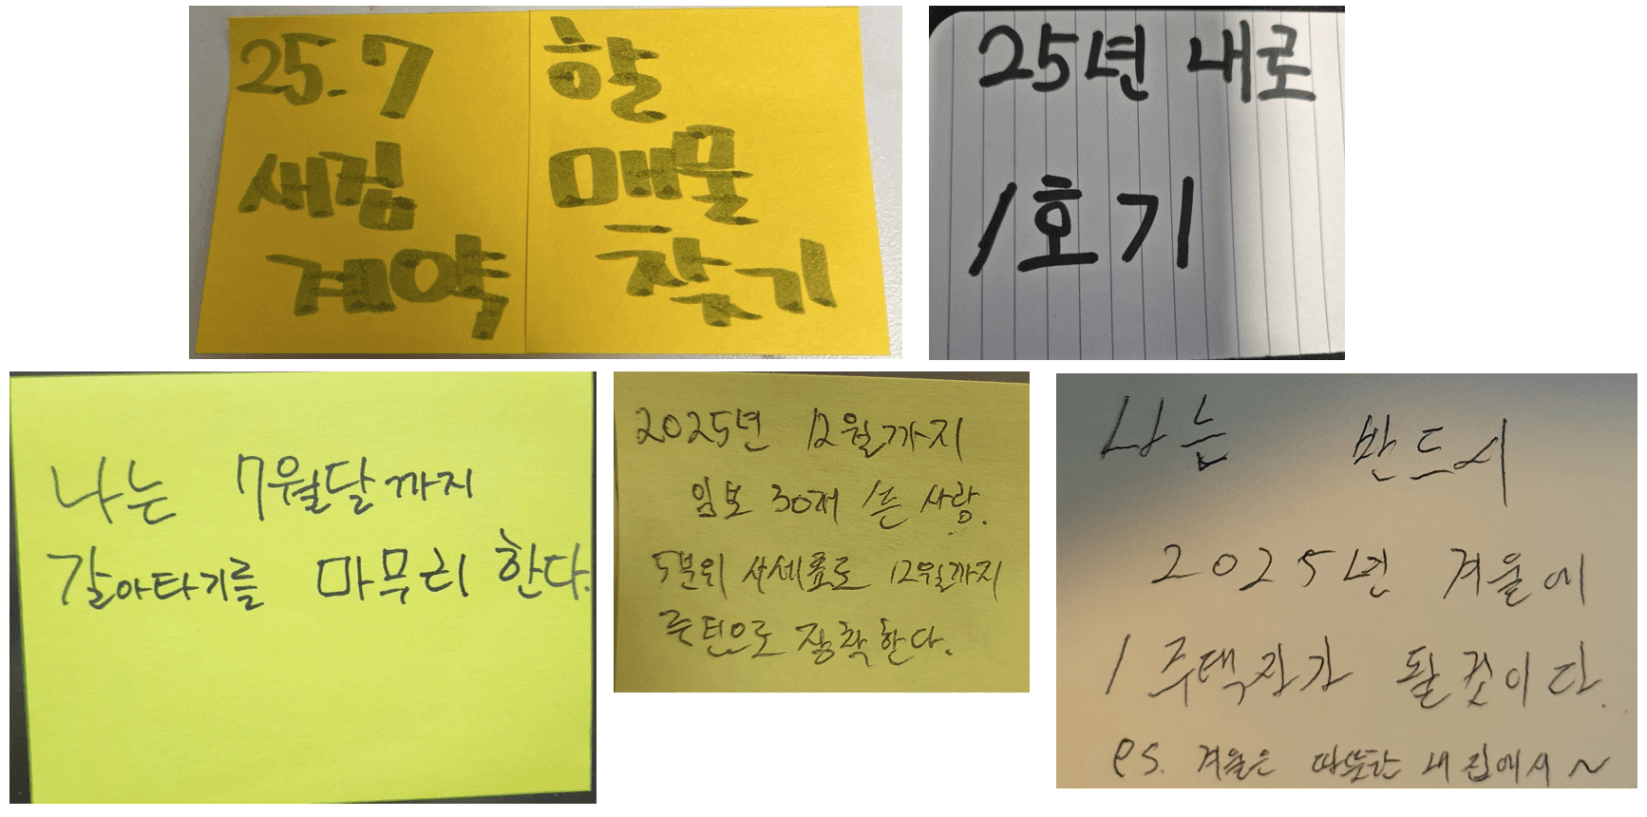 25.7
새집
계약
할
매물
찾기
25년 내로
1호기
나는 7월달까지
갈아타기를 마무리 한다.
2025년 12월까지
임보 30개 쓴 사람.
5분위 상세표로 12월까지
루틴으로 정착한다.
나는 반드시
2025년 겨울에
1주택자가 될것이다.
PS. 겨울은 따뜻한 내 집에서~